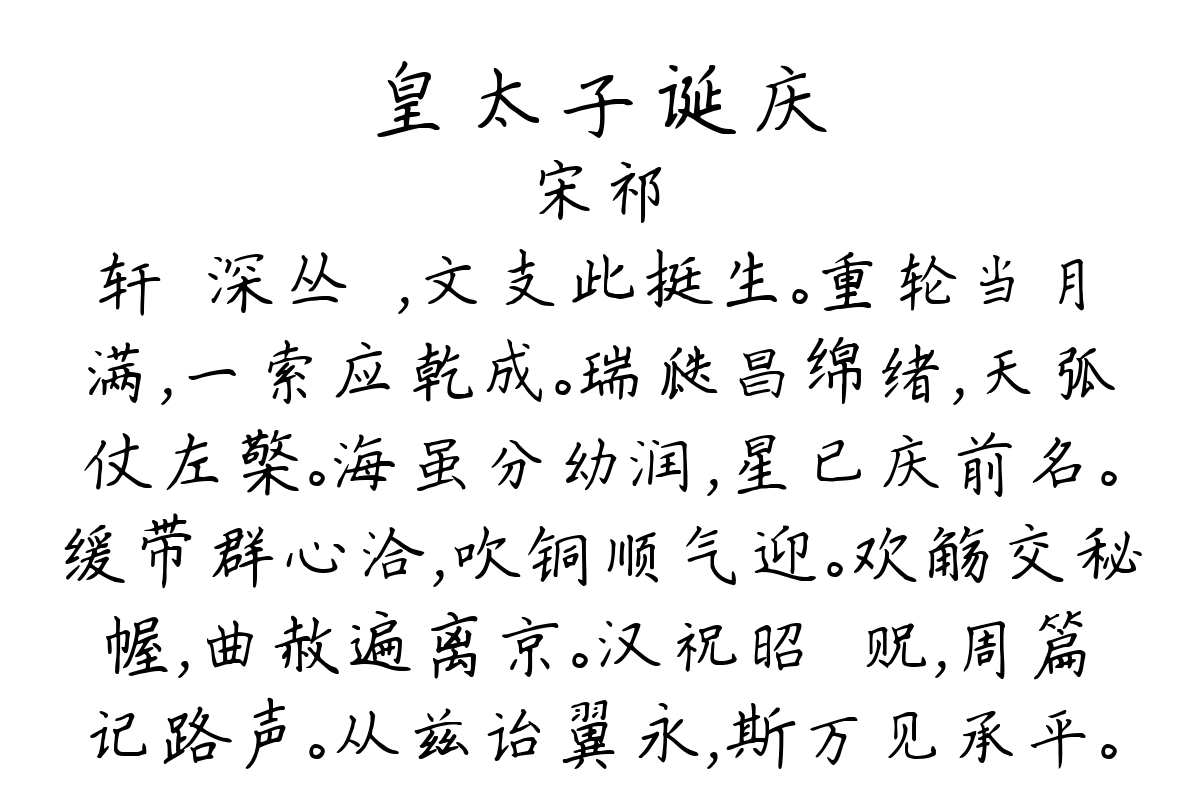 皇太子诞庆
宋祁
轩 深丛 ,文支此挺生。重轮当月
满,一索应乾成。瑞瓞昌绵绪,天弧
仗左檠。海虽分幼润,星已庆前名。
缓带群心洽,吹铜顺气迎。欢觞交秘
幄,曲赦遍离京。汉祝昭 贶,周篇
记路声。从兹诒翼永,斯万见承平。